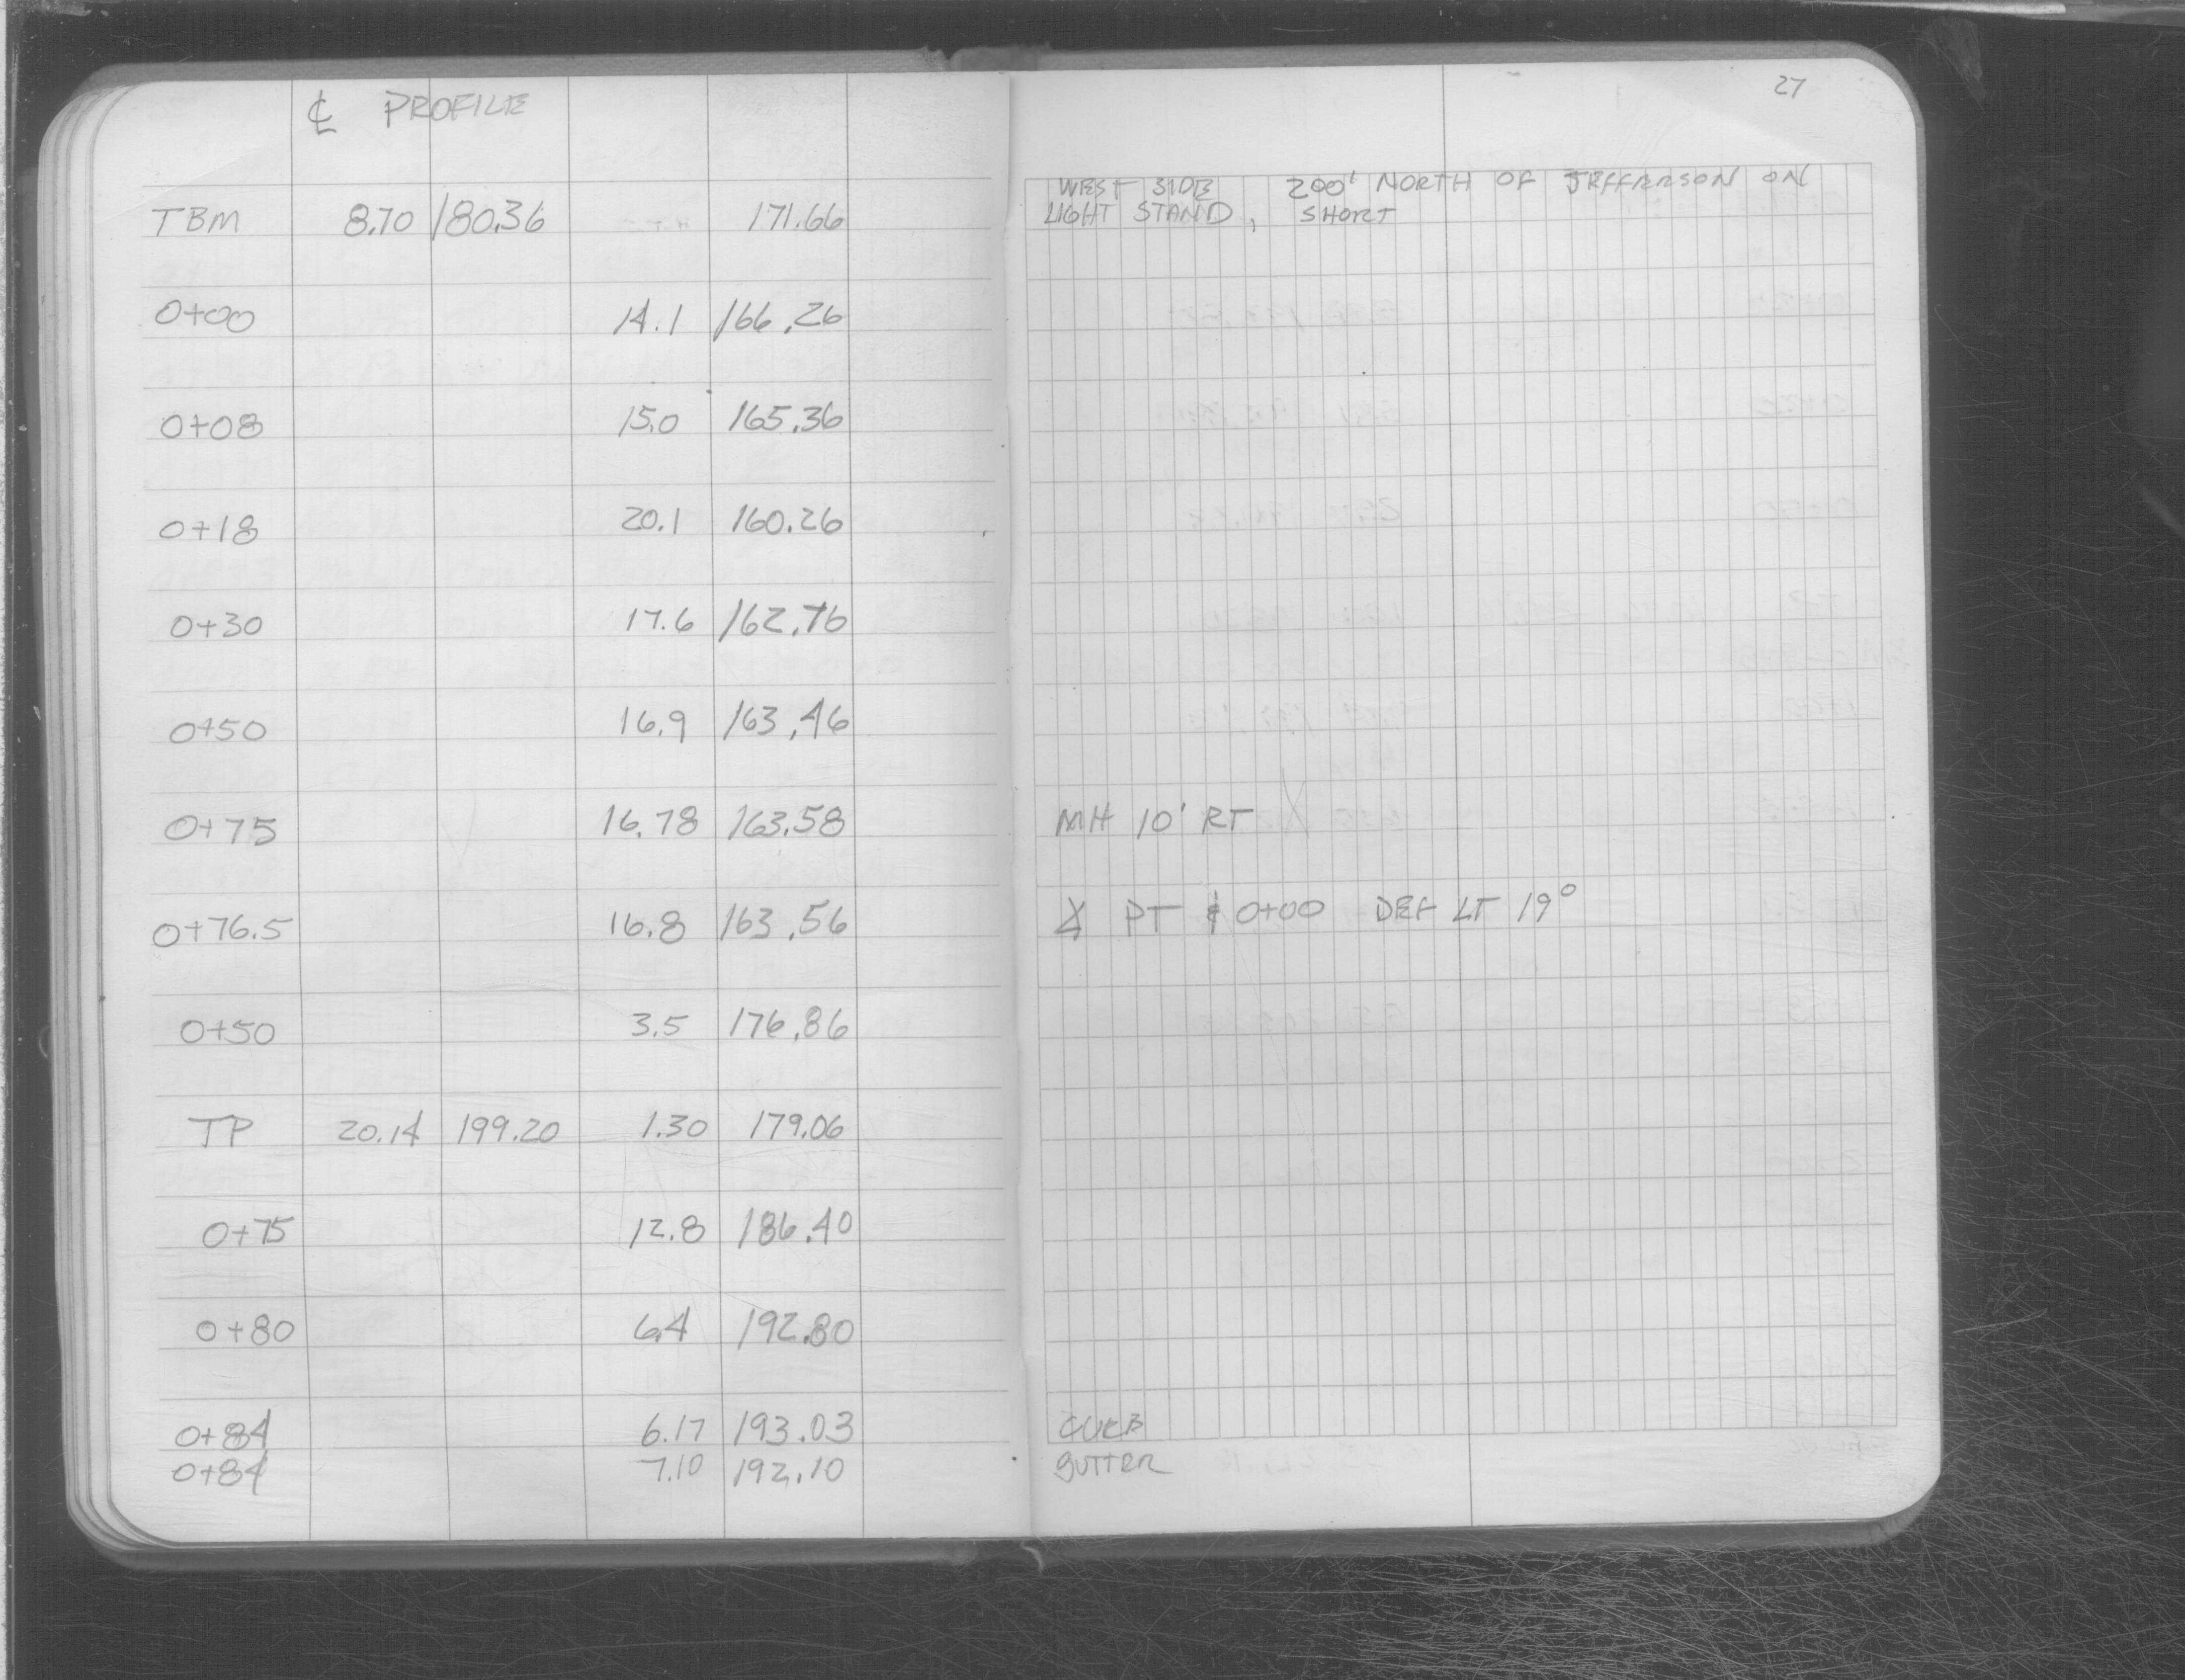 ℄ PROFILE
27
TBM 8.70 180.36 171.66 WEST SIDE 200' NORTH OF JEFFERSON ON
LIGHT STAND, SHORT
0+00 14.1 166.26
0+08 15.0 165.36
0+18 20.1 160.26
0+30 17.6 162.76
0+50 16.9 163.46
0+75 16.78 163.58 MH 10' RT
0+76.5 16.8 163.56 ∠ PT & 0+00 DEF LT 19°
0+50 3.5 176.86
TP 20.14 199.20 1.30 179.06
0+75 12.8 186.40
0+80 6.4 192.80
0+84 6.17 193.03 CURB
0+84 7.10 192.10 GUTTER